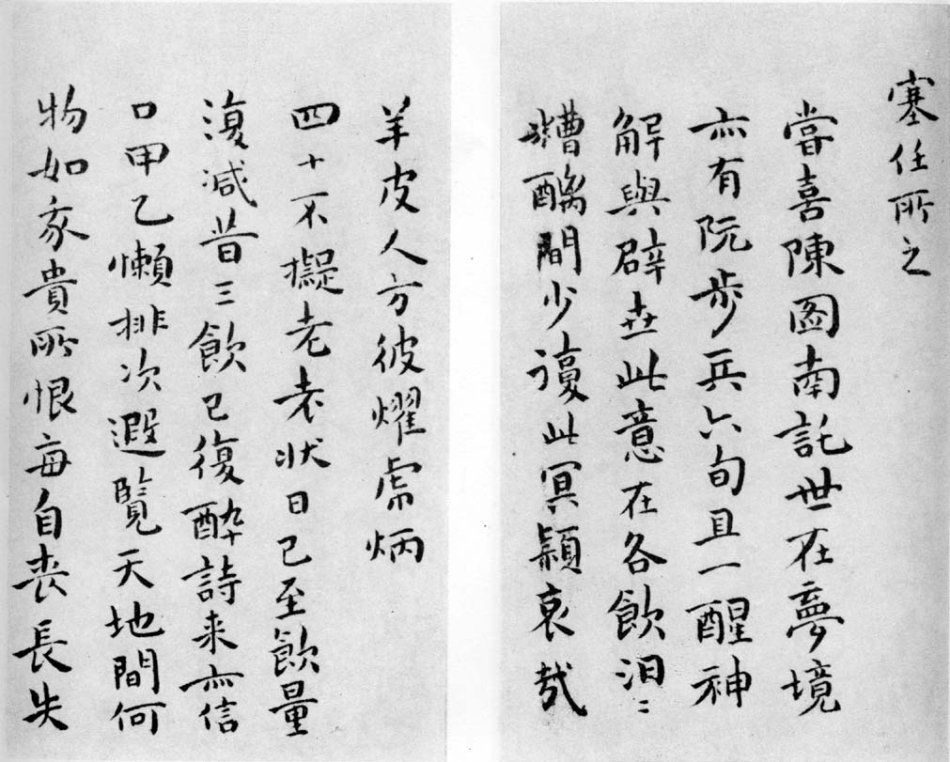 塞任所之
當喜陳圖南託世在夢境
亦有阮步兵六旬且一醒神
解與辟世此意在各飲汩〻
糟醨間少複此冥穎哀哉
羊皮人方彼耀虎炳
四十不擬老老狀日已至飲量
復減昔三飲已復醉詩来亦信
口甲乙懶排次遐覽天地間何
物如我貴所恨每自喪長失